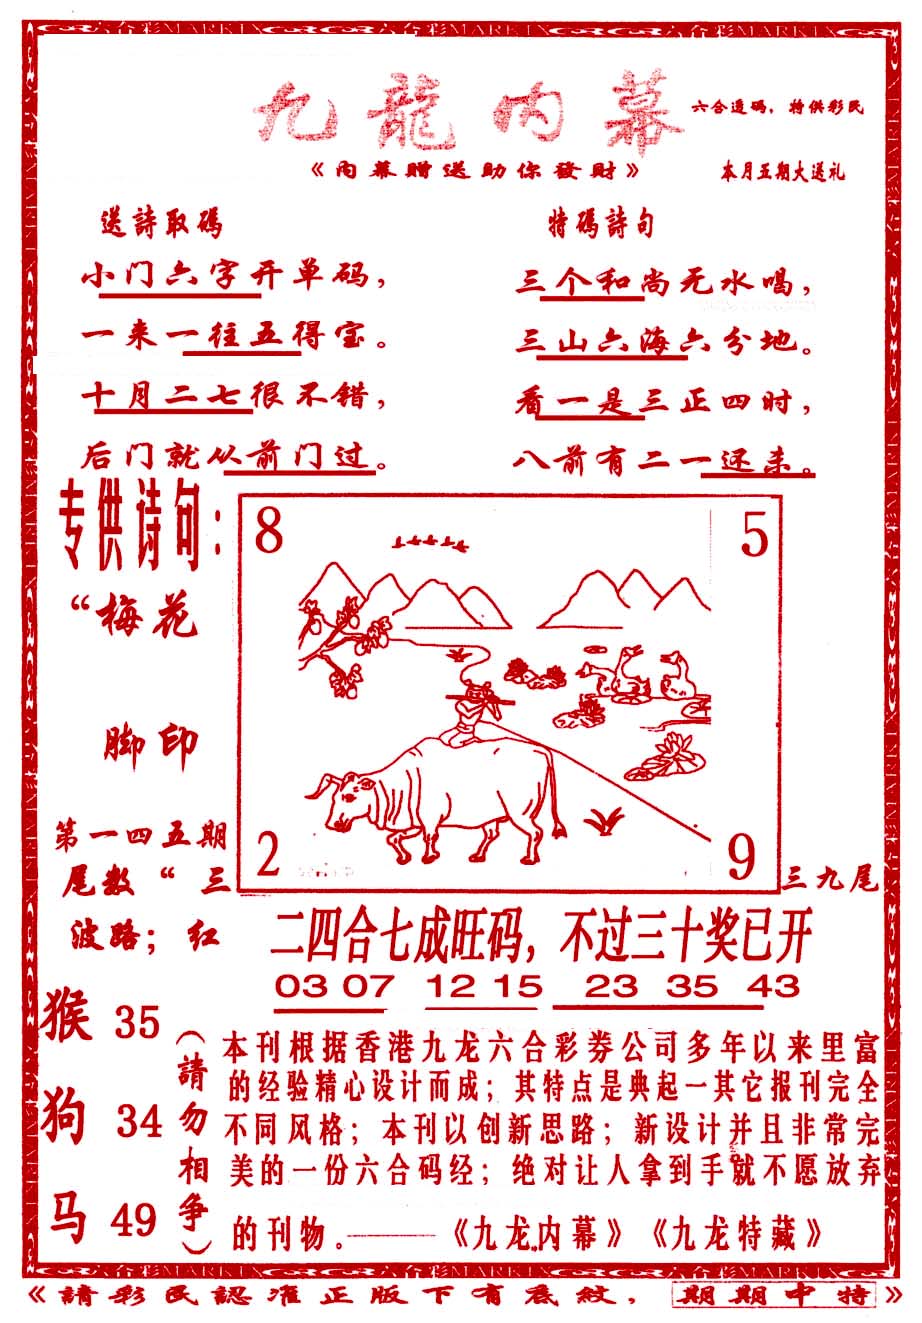 九龍内幕
六合透码，特供彩民
《内幕贈送助你發財》
本月五期大送礼
送詩取碼
小门六字开单码，
一来一往五得宝。
十月二七很不错，
后门就从前门过。
特碼詩句
三个和尚无水喝，
三山六海六分地。
看一是三正四时，
八前有二一还来。
专供诗句：
“梅花
脚印
8
5
2
9
第一四五期
尾数“三
三九尾
波路；红
二四合七成旺码，不过三十奖已开
03 07 12 15 23 35 43
猴 35
狗 34
马 49
（請勿相争）
本刊根据香港九龙六合彩券公司多年以来里富
的经验精心设计而成；其特点是典起一其它报刊完全
不同风格；本刊以创新思路；新设计并且非常完
美的一份六合码经；绝对让人拿到手就不愿放弃
的刊物。——《九龙内幕》《九龙特藏》
《請彩民認准正版下有底紋，期期中特》